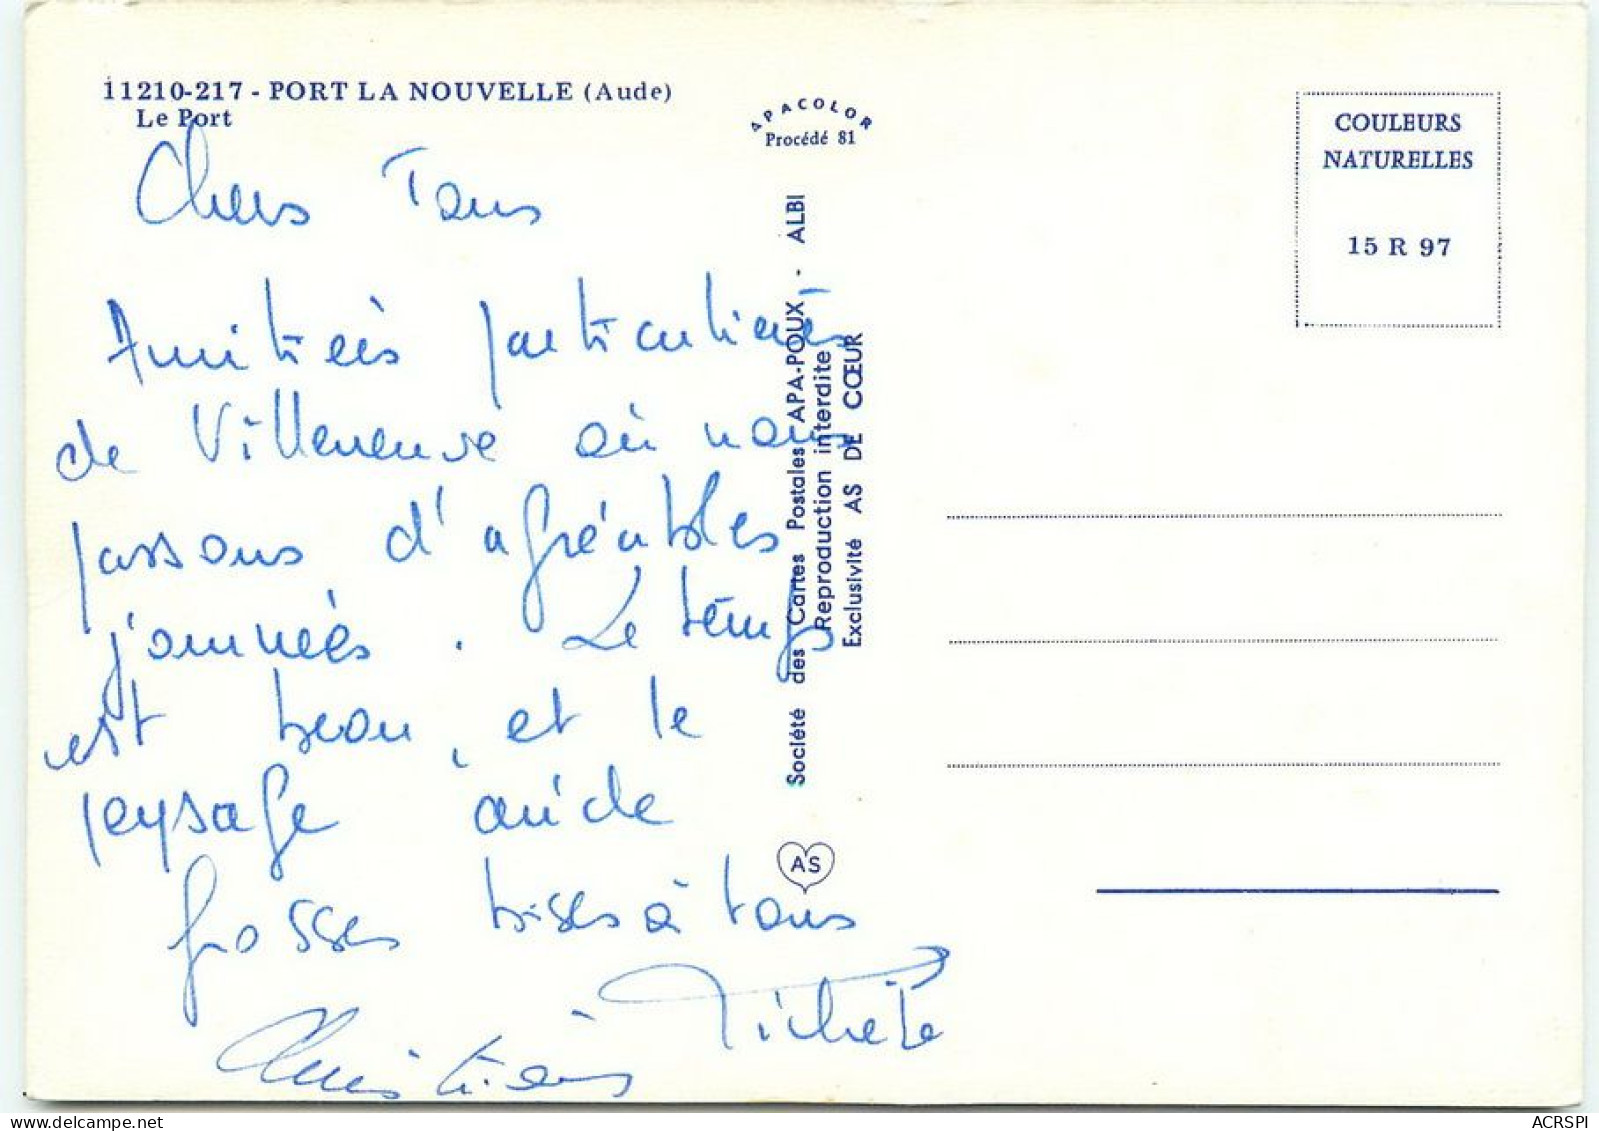 11210-217 - PORT LA NOUVELLE (Aude)
Le Port
APACOLOR
Procédé 81
COULEURS
NATURELLES
15 R 97
Chers Tous
Amitiés particulières
de Villeneuve où nous
passons d'agréables
journées. Le temps
est beau, et le
paysage aride
grosses bises à tous
Michele
Christian
Société des Cartes Postales APA-POUX - ALBI
Reproduction interdite
Exclusivité AS DE CŒUR
AS
ACRSPI